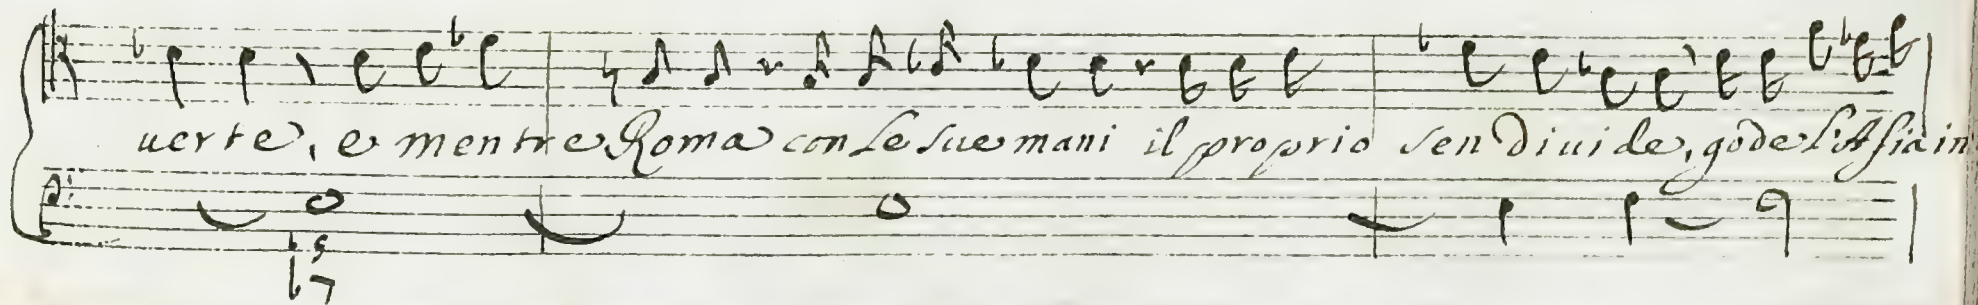 uerte, e mentre Roma con le sue mani il proprio sen diuide, gode l'Asia in
b 5
b 7